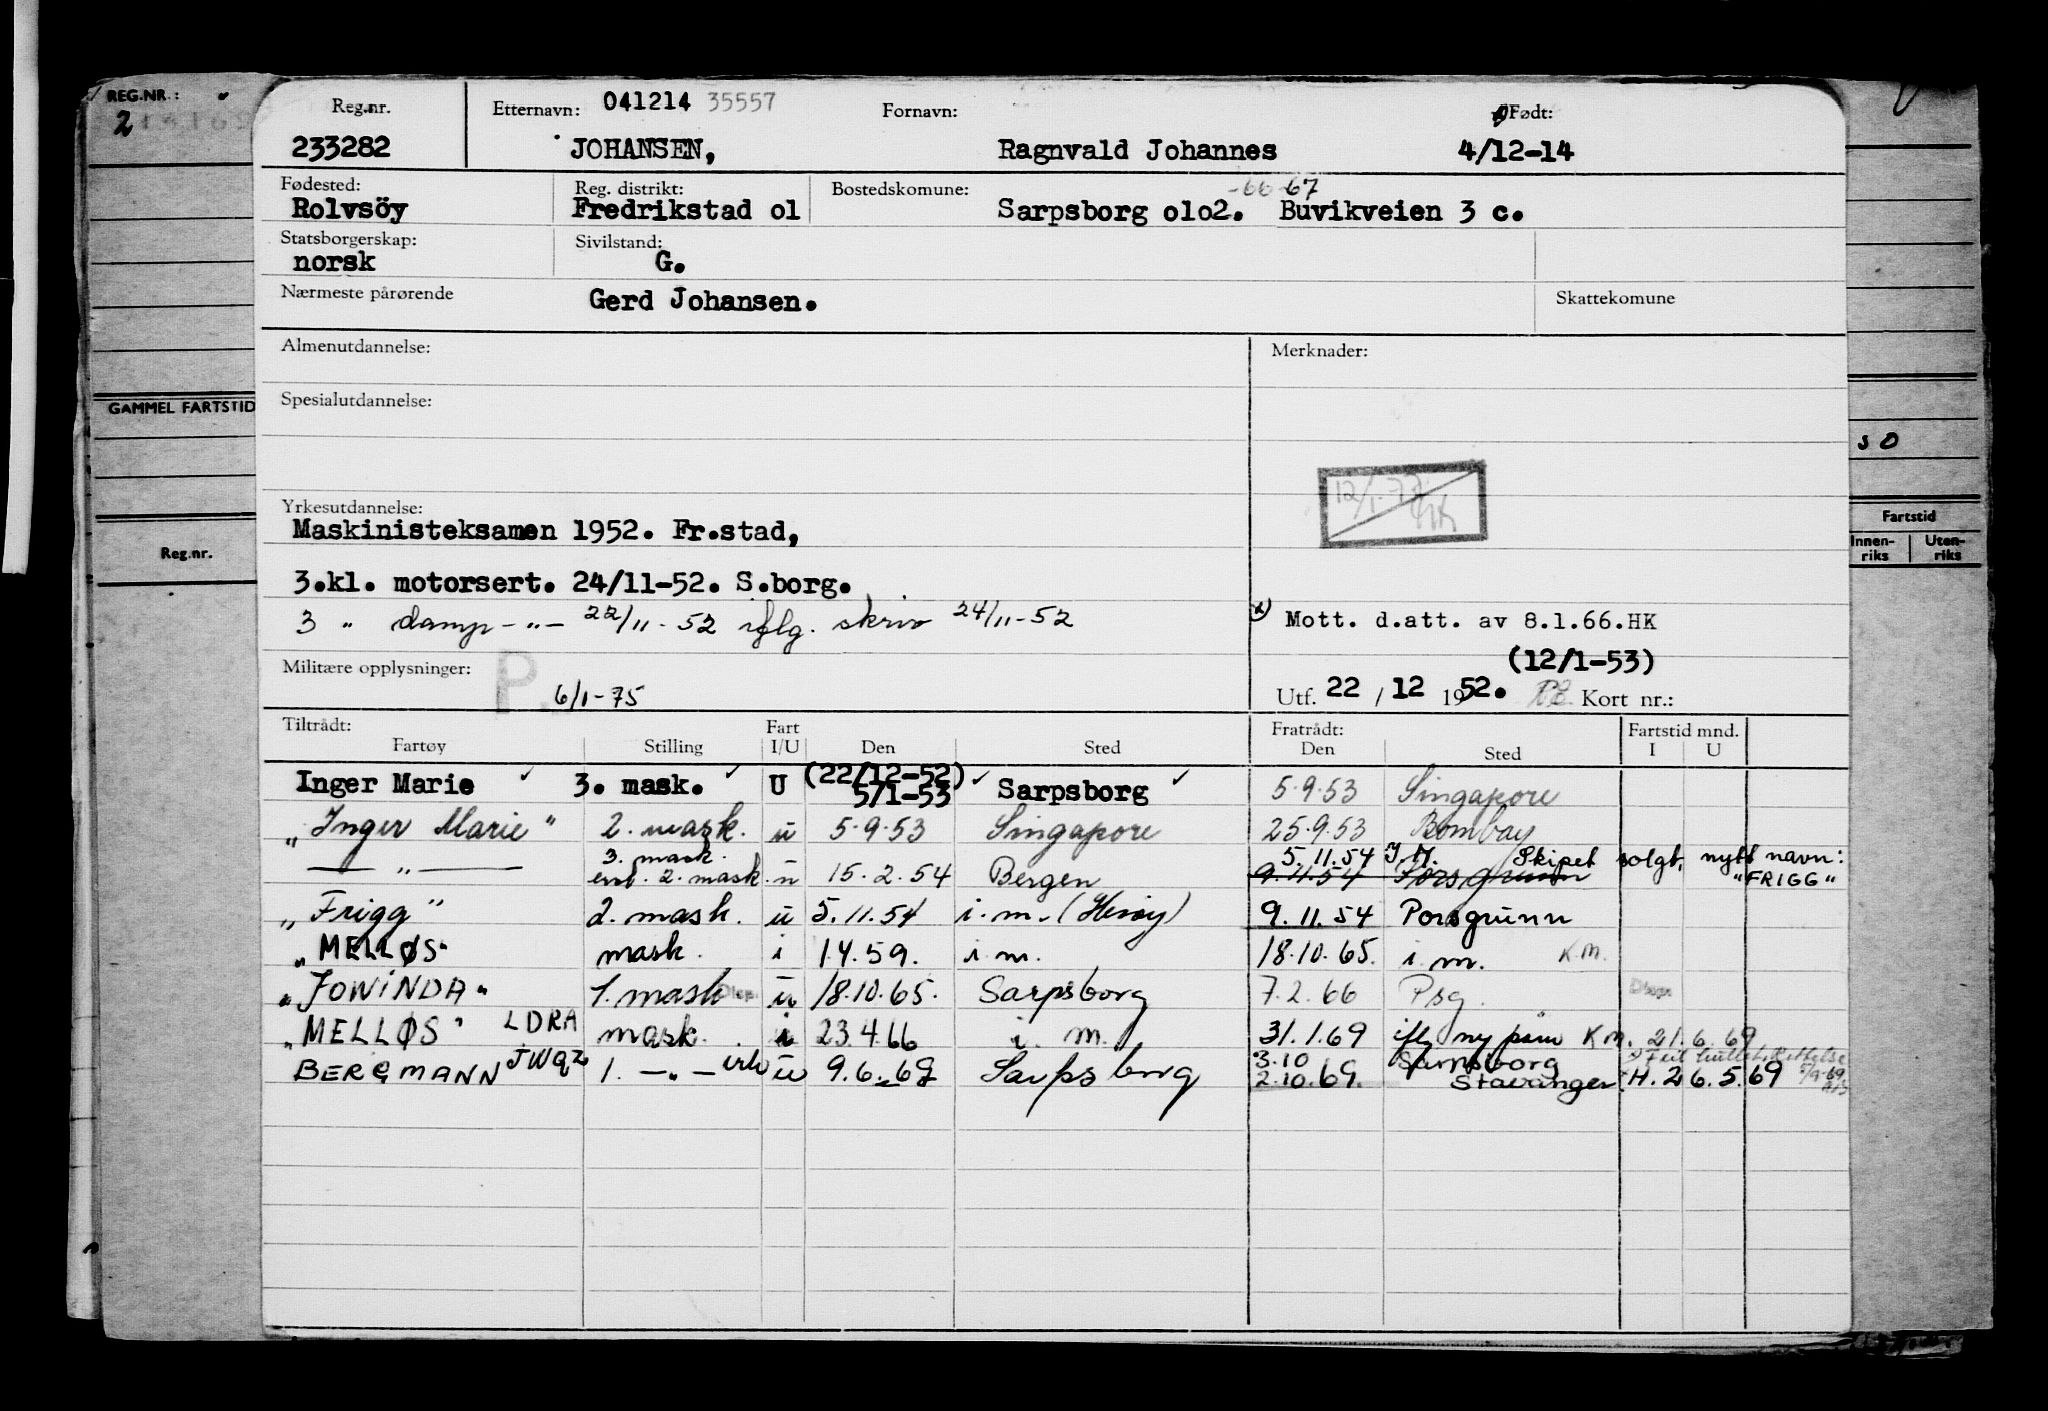 REG.NR.:
2
Reg.nr. Etternavn: 041214 35557 Fornavn: Født:
233282 JOHANSEN, Ragnvald Johannes 4/12-14
Fødested: Reg. distrikt: Bostedskomune: -66-67
Rolvsöy Fredrikstad o1 Sarpsborg o1o2. Buvikveien 3 c.
Statsborgerskap: Sivilstand:
norsk G.
Nærmeste pårørende Gerd Johansen. Skattekomune
Almenutdannelse: Merknader:
GAMMEL FARTSTID
Spesialutdannelse:
s O
12/1-77 HK
Yrkesutdannelse:
Maskinisteksamen 1952. Fr.stad,
Fartstid
Reg.nr.
Innen-riks Uten-riks
3.kl. motorsert. 24/11-52. S.borg.
3 " damp -"- 22/11-52 iflg. skriv 24/11-52
x) Mott. d.att. av 8.1.66.HK
(12/1-53)
Militære opplysninger: P. 6/1-75
Utf. 22 / 12 1952. Kort nr.:
Tiltrådt: Fart Fratrådt: Fartstid mnd.
Fartøy Stilling I/U Den Sted Den Sted I U
Inger Marie 3. mask. U (22/12-52) 5/1-53 Sarpsborg 5.9.53 Singapore
"Inger Marie" 2. mask. u 5.9.53 Singapore 25.9.53 Bombay
— " — 3. mask. enl. 2. mask. u 15.2.54 Bergen 5.11.54 I.M. Skipet solgt, nytt navn: "FRIGG"
9.11.54 Porsgrunn
"Frigg" 2. mask. u 5.11.54 i.m. (Herøy) 9.11.54 Porsgrunn
"MELLØS" mask. i 1.4.59. i.m. 18.10.65. i.m. K.M.
"JOWINDA" 1. mask Disp. u 18.10.65. Sarpsborg 7.2.66 Psg. Disp.
"MELLØS" LDRA mask. i 23.4.66 i.m. 31.1.69 ifl ny påm K.M. 21.6.69
BERGMANN JWQZ 1. -"- u 9.6.69 Sarpsborg 3.10 Sarpsborg
2.10.69. Stavanger. H. 26.5.69